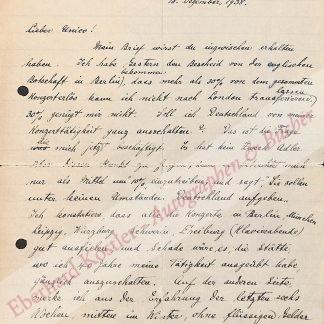 18. Dezember, 1938.
Lieber Enrico!
Mein Brief wirst du inzwischen erhalten
haben. Ich habe gestern den Bescheid von der englischen
Botschaft in Berlin, dass mehr als 30% von dem gesammten
bekommen
Konzerterlös kann ich nicht nach London transferieren
lassen
30% genügt mir nicht. Soll ich Deutschland von meiner
Konzerttätigkeit ganz ausschalten? Das ist die
mich jetzt beschäftigt. Es hat kein Zweck
nur als Mittel um 10% und sagt "Sie sollen
unter keinen Umständen Deutschland aufgeben.
Ich konstatiere dass alle die Konzerte in Berlin, München
Leipzig, Würzburg, Schwerin, Freiburg (Klavierabende)
gut ausfielen und Schade wäre es die Stätte,
wo ich Jahre meine Tätigkeit ausgeübt habe
gänzlich auszuschalten. Auf der anderen Seite,
merke ich aus der Erfahrung der letzten sechs
Wochen, mitten im Winter, ohne flüssigen Gelder
Eberhard Köstler Autographen & Bücher